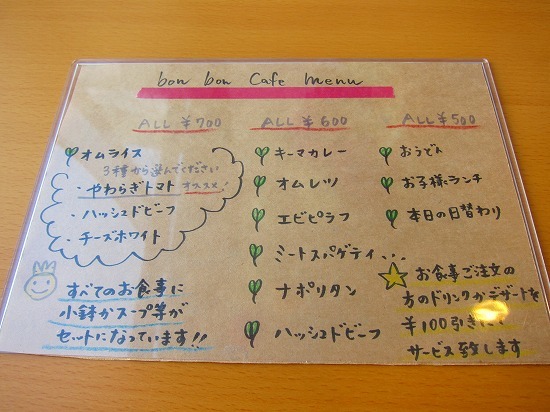 bon bon Cafe menu
ALL ¥700
オムライス
3種から選んでください
・やわらぎトマト オススメ!
・ハッシュドビーフ
・チーズホワイト
すべてのお食事に
小鉢かスープ等が
セットになっています!!
ALL ¥600
キーマカレー
オムレツ
エビピラフ
ミートスパゲティ...
ナポリタン
ハッシュドビーフ
ALL ¥500
おうどん
お子様ランチ
本日の日替わり
お食事ご注文の
方のドリンクかデザートを
¥100引きにて
サービス致します